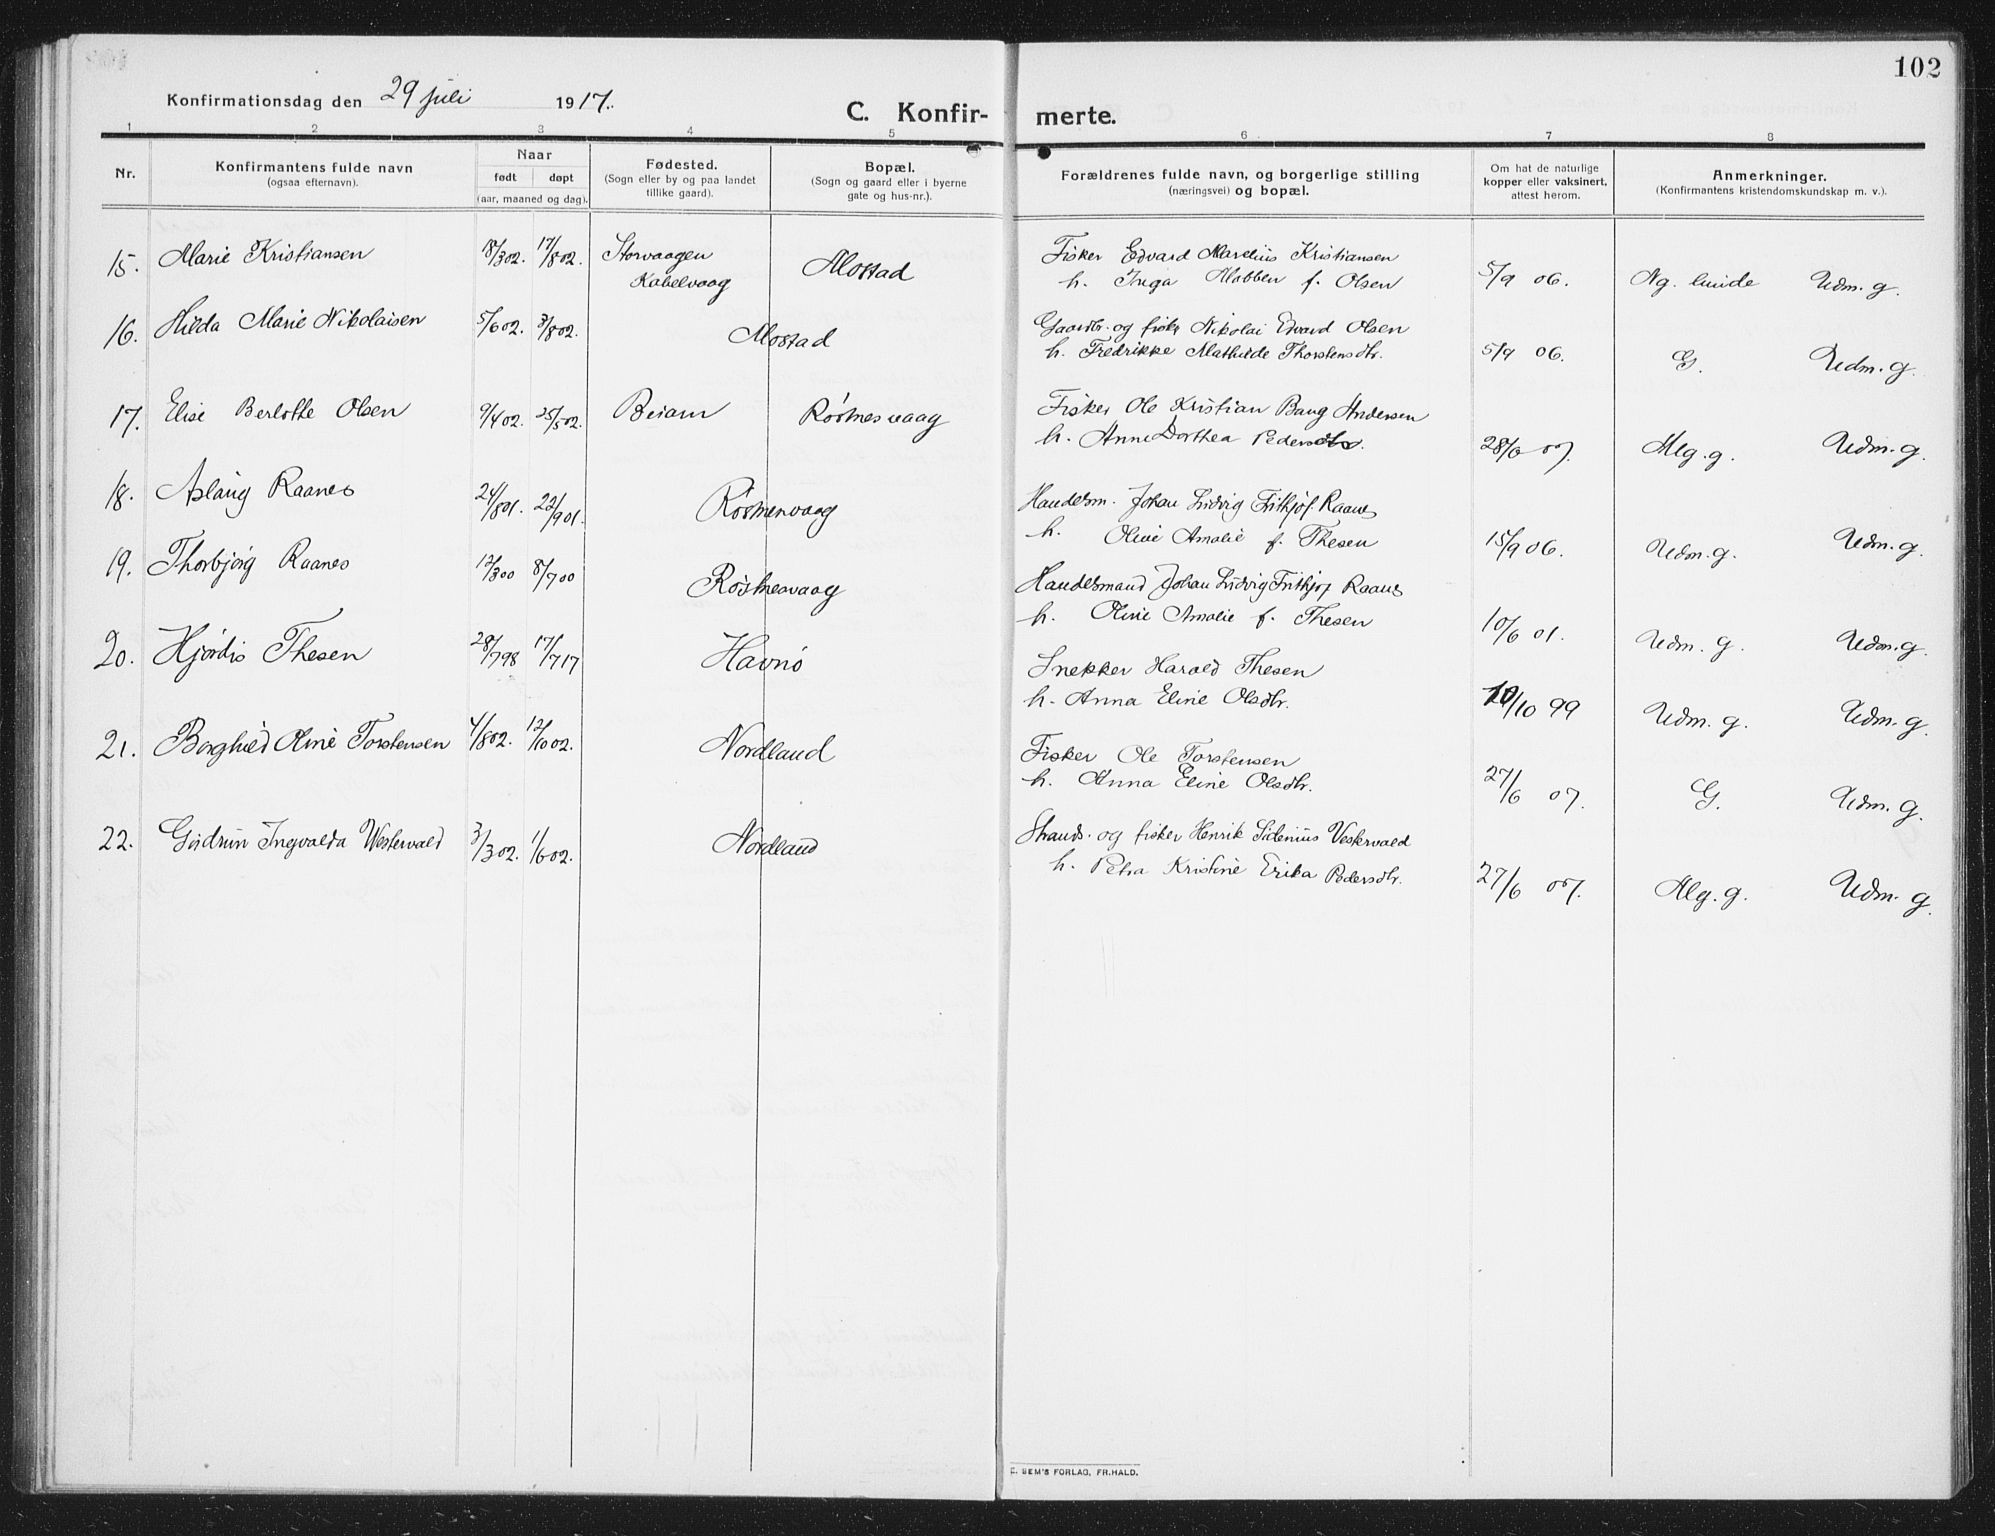 102
Konfirmationsdag den 29 juli 1917.
C. Konfir- merte.
1 2 3 4 5 6 7 8
Nr.
Konfirmantens fulde navn
(ogsaa efternavn).
Naar
født døpt
(aar, maaned og dag).
Fødested.
(Sogn eller by og paa landet
tillike gaard).
Bopæl.
(Sogn og gaard eller i byerne
gate og hus-nr.).
Forældrenes fulde navn, og borgerlige stilling
(næringsvei) og bopæl.
Om hat de naturlige
kopper eller vaksinert,
attest herom.
Anmerkninger.
(Konfirmantens kristendomskundskap m. v.).
15. Marie Kristiansen 18/3 02. 17/8 02. Storvaagen Mostad Fisker Edvard Marelius Kristiansen 5/9 06. Ng. Udm. g.
Kabelvaag h. Inga f. Olsen
16. Hilda Marie Nikolaisen 5/6 02. 3/8 02. Mostad Gaardbr. og fisker Nikolai Edvard Olsen 5/9 06. G. Udm. g.
h. Fredrikke Mathilde Thorstensdtr.
17. Elise Berlotte Olsen 9/4 02. 25/5 02. Beiarn Røstnesvaag Fisker Ole Kristian Bang Andersen 28/6 07. Mg. g. Udm. g.
h. Anne Dorthea Pedersdtr.
18. Aslaug Raanes 24/8 01. 22/9 01. Røstnesvaag Handelsm. Johan Ludvig Frithjof Raanes 15/9 06. Udm. g. Udm. g.
h. Oline Amalie f. Thesen
19. Thorbjørg Raanes 12/3 00 8/7 00 Røstnesvaag Handelsmand Johan Ludvig Frithjof Raanes 10/6 01. Udm. g. Udm. g.
h. Oline Amalie f. Thesen
20. Hjørdis Thesen 28/7 98 17/7 17 Havnø Snekker Harald Thesen 10/10 99 Udm. g. Udm. g.
h. Anna Eline Olsdtr.
21. Borghild Oline Torstensen 4/8 02. 12/10 02. Nordland Fisker Ole Torstensen 27/6 07. G. Udm. g.
h. Anna Eline Olsdtr.
22. Gudrun Ingvalda Westervald 3/3 02. 1/6 02. Nordland Strands. og fisker Henrik Sidenius Vestervald 27/6 07. Mg. g. Udm. g.
h. Petra Kristine Erika Pedersdtr.
E. SEM'S FORLAG, FR.HALD.